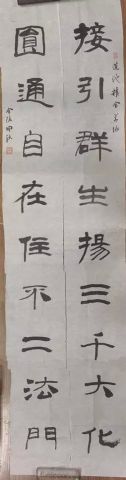 接引群生揚三千大化
圓通自在住不二法門